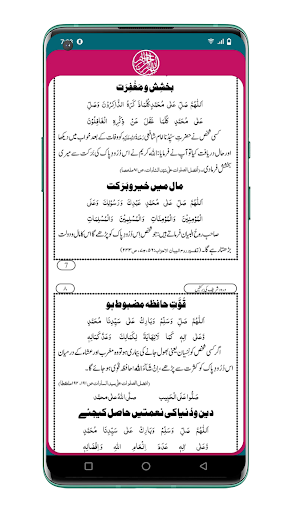 بخشش و مغفرت
اَللّٰهُمَّ صَلِّ عَلٰى مُحَمَّدٍ كُلَّمَا ذَكَرَهُ الذَّاكِرُوْنَ وَصَلِّ
عَلٰى مُحَمَّدٍ كُلَّمَا غَفَلَ عَنْ ذِكْرِهِ الْغَافِلُوْنَ
کسی شخص نے حضرتِ سیِّدُنا امام شافعی کو وفات کے بعد خواب میں دیکھا
اور حال دریافت کیا تو آپ نے فرمایا: اللہ کریم نے اس دُرُودِ پاک کی برکت سے میری
بخشش فرما دی۔
مال میں خیر و برکت
اَللّٰهُمَّ صَلِّ عَلٰى مُحَمَّدٍ عَبْدِكَ وَرَسُوْلِكَ وَعَلَى
الْمُؤْمِنِيْنَ وَالْمُؤْمِنَاتِ وَالْمُسْلِمِيْنَ وَالْمُسْلِمَاتِ
صاحبِ روح البیان فرماتے ہیں: جو شخص اس دُرُودِ پاک کو پڑھے گا اس کا مال و دولت
بڑھتا رہے گا۔
7
٨
قُوَّتِ حافظہ مضبوط ہو
اَللّٰهُمَّ صَلِّ وَسَلِّمْ وَبَارِكْ عَلٰى سَيِّدِنَا مُحَمَّدٍ
وَّعَلٰى اٰلِهٖ كَمَا لَا نِهَايَةَ لِكَمَالِكَ وَعَدَدَ كَمَالِهٖ
اگر کسی شخص کو نسیان یعنی بھول جانے کی بیماری ہو تو وہ مغرب اور عشاء کے درمیان
اس دُرُودِ پاک کو کثرت سے پڑھے، اِنْ شَآءَ اللہ حافظہ قوی ہو جائے گا۔
صَلُّوا عَلَى الْحَبِيْب صَلَّى اللهُ عَلٰى مُحَمَّد
دین و دُنیا کی نعمتیں حاصل کیجئے
اَللّٰهُمَّ صَلِّ وَسَلِّمْ وَبَارِكْ عَلٰى سَيِّدِنَا مُحَمَّدٍ
وَّعَلٰى اٰلِهٖ عَدَدَ اِنْعَامِ اللهِ وَاِفْضَالِهٖ